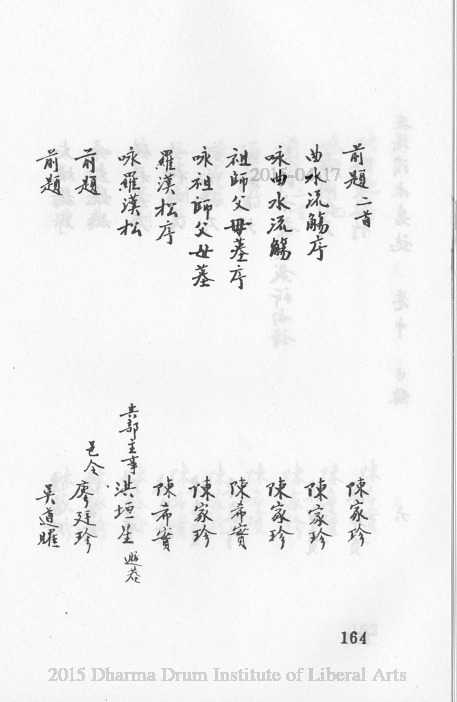 前題二首 陳家珍
曲水流觴序 陳家珍
咏曲水流觴 陳家珍
祖師父母墓序 陳希實
咏祖師父母墓 陳家珍
羅漢松序 陳希實
咏羅漢松 兵部主事 洪垣星
前題 邑令 廖廷珍
前題 吳道曜
164
2015 Dharma Drum Institute of Liberal Arts